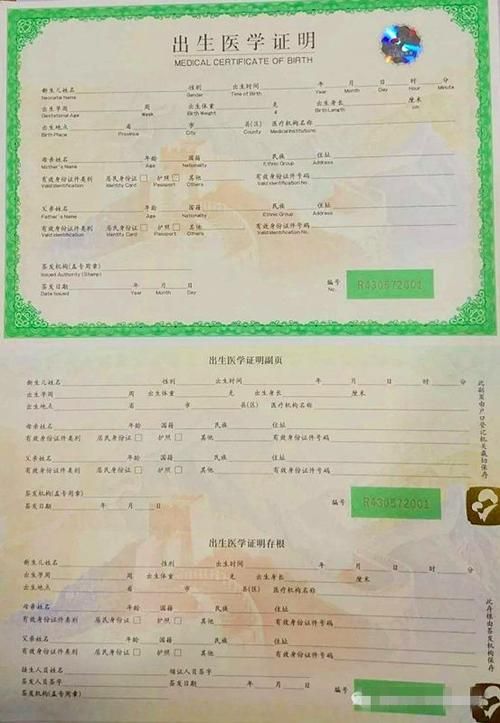 出生医学证明
MEDICAL CERTIFICATE OF BIRTH
新生儿姓名 性别 出生时间 年 月 日 时 分
Neonate Name Gender Time of Birth Year Month Day Hour Minute
出生孕周 周 出生体重 克 出生身长 厘米
Gestational Age Week Birth Weight g Birth Length cm
出生地点 省 市 县(区) 医疗机构名称
Birth Place Province City County Medical Institutions
母亲姓名 年龄 国籍 民族 住址
Mother's Name Age Nationality Ethnic Group Address
有效身份证件类别 居民身份证 □ 护照 □ 其他 有效身份证件号码
Valid Identification Identity Card Passport Others Valid Identification No.
父亲姓名 年龄 国籍 民族 住址
Father's Name Age Nationality Ethnic Group Address
有效身份证件类别 居民身份证 □ 护照 □ 其他 有效身份证件号码
Valid Identification Identity Card Passport Others Valid Identification No.
签发机构(盖专用章)
Issued Authority (Stamp)
签发日期 年 月 日 编号 R430572001
Date Issued Year Month Day No.
出生医学证明副页
新生儿姓名 性别 出生时间 年 月 日 时 分
出生孕周 周 出生体重 克 出生身长 厘米
出生地点 省 市 县(区) 医疗机构名称
母亲姓名 年龄 国籍 民族 住址
有效身份证件类别 居民身份证 □ 护照 □ 其他 有效身份证件号码
父亲姓名 年龄 国籍 民族 住址
有效身份证件类别 居民身份证 □ 护照 □ 其他 有效身份证件号码
签发机构(盖专用章)
签发日期 年 月 日 编号 R430572001
此副页由户口登记机关裁切保存
出生医学证明存根
新生儿姓名 性别 出生时间 年 月 日 时 分
出生孕周 周 出生体重 克 出生身长 厘米
出生地点 省 市 县(区) 医疗机构名称
母亲姓名 年龄 国籍 民族 住址
有效身份证件类别 居民身份证 □ 护照 □ 其他 有效身份证件号码
父亲姓名 年龄 国籍 民族 住址
有效身份证件类别 居民身份证 □ 护照 □ 其他 有效身份证件号码
接生人员签字 领证人员签字
签发人员签字 签发日期 年 月 日 编号
签发机构(盖专用章)
此存根由签发机构保存